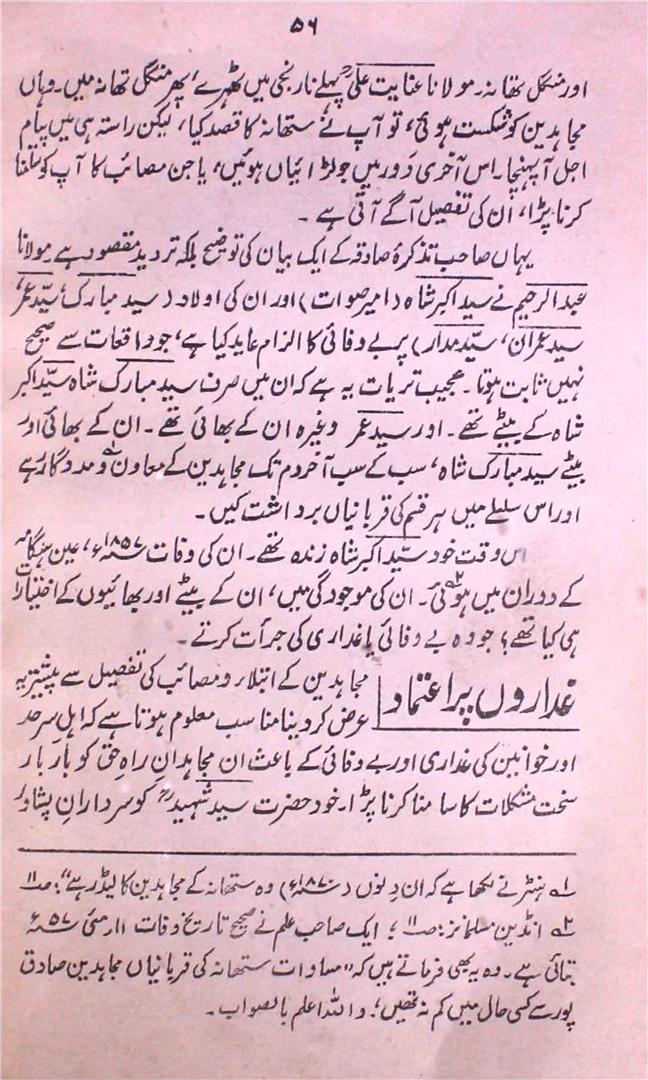 ۵۶
اور منگل تھانہ۔ مولانا عنایت علیؒ پہلے نارنجی میں ٹھہرے، پھر منگل تھانہ میں۔ وہاں
مجاہدین کو شکست ہوئی، تو آپ نے ستھانہ کا قصد کیا، لیکن راستہ ہی میں پیام
اجل آپہنچا۔ اس آخری دَور میں جو لڑائیاں ہوئیں، یا جن مصائب کا آپ کو سامنا
کرنا پڑا، اُن کی تفصیل آگے آتی ہے۔
یہاں صاحب تذکرۂ صادقہ کے ایک بیان کی توضیح بلکہ تردید مقصود ہے مولانا
عبدالرحیم نے سید اکبر شاہ (امیر صوات) اور ان کی اولاد (سید مبارک، سیّد عمر،
سید عمران، سیّد مدار) پر بے وفائی کا الزام عاید کیا ہے، جو واقعات سے صحیح
نہیں ثابت ہوتا۔ عجیب تر بات یہ ہے کہ ان میں صرف سید مبارک شاہ سیّد اکبر
شاہ کے بیٹے تھے۔ اور سید عمر وغیرہ ان کے بھائی تھے۔ ان کے بھائی اور
بیٹے سید مبارک شاہ، سب کے سب آخر دم تک مجاہدین کے معاون و مددگار رہے
اور اس سلسلے میں ہر قسم کی قربانیاں برداشت کیں۔
اس وقت خود سیّد اکبر شاہ زندہ تھے۔ ان کی وفات ۱۸۵۷ء، عین ہنگامہ
کے دوران میں ہوئی۲؎۔ ان کی موجودگی میں، ان کے بیٹے اور بھائیوں کے اختیارات
ہی کیا تھے؟ جو وہ بے وفائی یا غداری کی جرأت کرتے۔
غداروں پر اعتماد مجاہدین کے ابتلاء و مصائب کی تفصیل سے پیشتر یہ
عرض کر دینا مناسب معلوم ہوتا ہے کہ اہلِ سرحد
اور خوانین کی غداری اور بے وفائی کے باعث ان مجاہدانِ راہِ حق کو بار بار
سخت مشکلات کا سامنا کرنا پڑا۔ خود حضرت سید شہیدؒ کو سردارانِ پشاور
۱؎ ہنٹر نے لکھا ہے کہ ان دنوں (۱۸۷۰ء) وہ ستھانہ کے مجاہدین کا لیڈر ہے"؛ صـ۱۱
۲؎ انڈین مسلمانز: صـ۱۱؛ ایک صاحب علم نے صحیح تاریخ وفات ۱۱؍ مئی ۵۷ء
بتائی ہے۔ وہ یہ بھی فرماتے ہیں کہ "سادات ستھانہ کی قربانیاں مجاہدین صادق
پور سے کسی حال میں کم نہ تھیں"؛ واللہ اعلم بالصواب۔